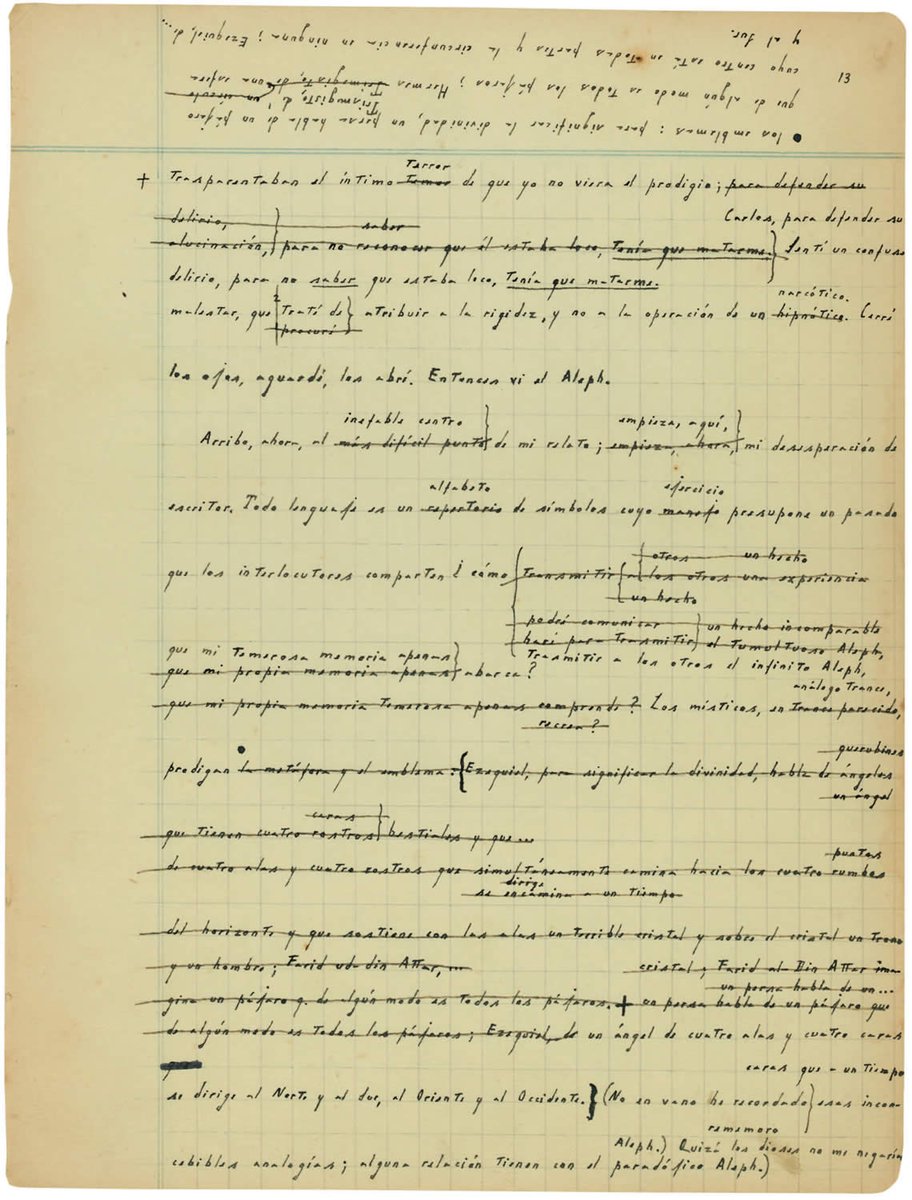 13
• los emblemas: para significar la divinidad, un persa habla de un pájaro
Trismegisto, d'
un círculo
que de algún modo es todos los pájaros; Hermes Trimegisto, de una esfera
cuyo centro está en todas partes y la circunferencia en ninguna; Ezequiel, d...
y al Sur.
Terror
+ Trasparentaban el íntimo temor de que yo no viera el prodigio; para defender su
delirio, saber Carlos, para defender su
alucinación, para no reconocer que él estaba loco, tenía que matarme. Sentí un confuso
delirio, para no saber que estaba loco, tenía que matarme.
narcótico.
malestar, que traté de atribuir a la rigidez, y no a la operación de un hipnótico. Cerré
procuré
los ojos, aguardé, los abrí. Entonces vi el Aleph.
inefable centro empieza, aquí,
Arribo, ahora, al más difícil punto de mi relato; empieza, ahora, mi desesperación de
alfabeto ejercicio
escritor. Todo lenguaje es un repertorio de símbolos cuyo manejo presupone un pasado
otros un hecho
que los interlocutores comparten ¿ cómo transmitir a los otros una experiencia
un hecho
podré comunicar un hecho incomparable
haré para trasmitir el tumultuoso Aleph,
que mi temerosa memoria apenas trasmitir a los otros el infinito Aleph,
que mi propia memoria apenas abarca?
análogo trance,
que mi propia memoria temerosa apenas comprende? Los místicos, en trance parecido,
recrea?
querubines
prodigan la metáfora y el emblema: Ezequiel, para significar la divinidad, habla de ángeles
un ángel
caras
que tienen cuatro rostros bestiales y que ...
puntas
de cuatro alas y cuatro rostros que simultáneamente camina hacia los cuatro rumbos
dirige
se encamina a un tiempo
del horizonte y que sostiene con las alas un terrible cristal y sobre el cristal un trono
y un hombre; Farid ud-din Attar, ... cristal; Farid al-Din Attar ima-
un persa habla de un ...
gina un pájaro q. de algún modo es todos los pájaros. + un persa habla de un pájaro que
de algún modo es todos los pájaros; Ezequiel, de un ángel de cuatro alas y cuatro caras
caras que a un tiempo
se dirige al Norte y al Sur, al Oriente y al Occidente. (No en vano he recordado esas incon-
rememoro
Aleph.) Quizá los dioses no me negarían
cebibles analogías; alguna relación tienen con el paradójico Aleph.)